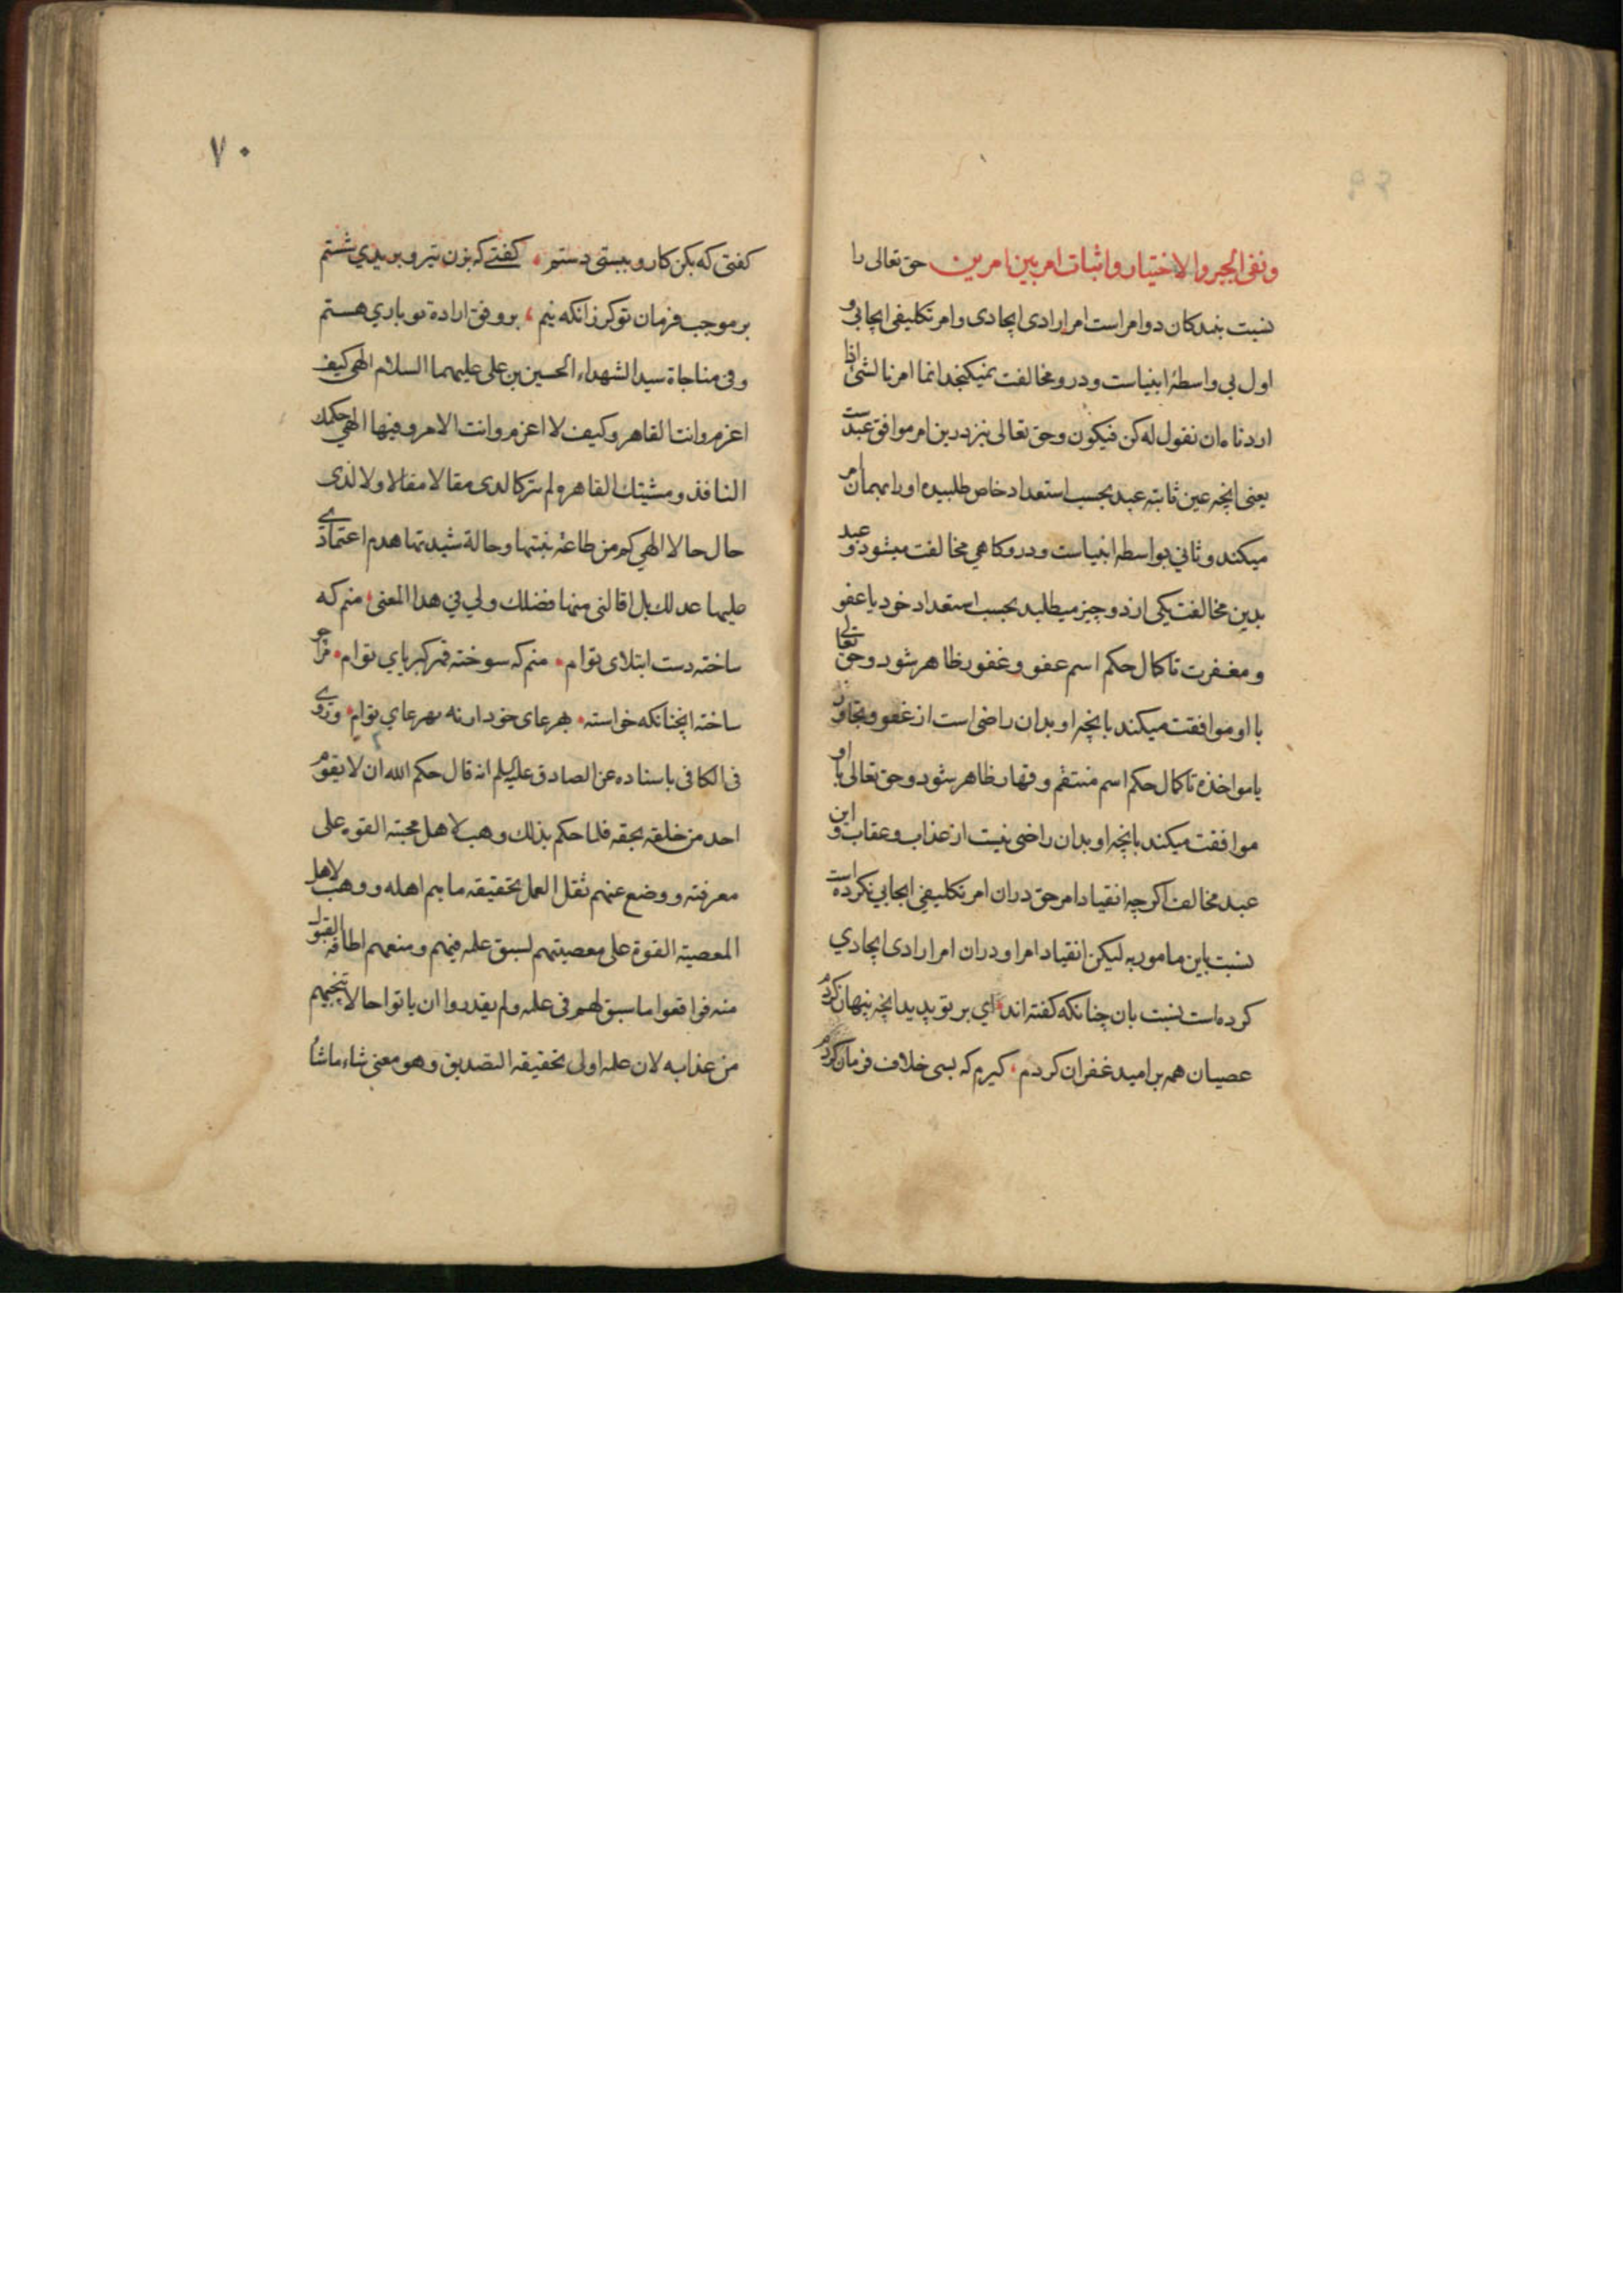 ونفی الجبر والاختیار واثبات امر بین امرین حق تعالی را
نسبت بنبدکان دو امر است امر ارادی ایجادی و امر تکلیفی ایجابی و
اول بی واسطهٔ انبیاست و درو مخالفت نمیکنجد انما امرنا لشئ اذا
اردناه ان نقول له کن فیکون و حق تعالی نیز درین امر موافق عبد ست
یعنی انچه عین ثابته عبد بحسب استعداد خاص طلبیده او را بهمان امر
میکند و ثانی بواسطه انبیاست و درو کاهی مخالفت میشود و عبد
بدین مخالفت یکی از دو چیز میطلبد بحسب استعداد خود یا عفو
و مغفرت تا کمال حکم اسم عفو و غفور ظاهر شود و حق تعالی
با او موافقت میکند بانچه او بدان راضی است از عفو و تجاوز
یا مواخذه تا کمال حکم اسم منتقم و قهار ظاهر شود و حق تعالی با او
موافقت میکند بانچه او بدان راضی نیست از عذاب و عقاب و این
عبد مخالف اکرچه انقیاد امر حق در ان امر تکلیفی ایجابی نکرده است
نسبت باین مامور به لیکن انقیاد امر او در ان امر ارادی ایجادی
کرده است نسبت بان چنانکه کفته اند ای بر تو پدید انچه پنهان کردم
عصیان همه بر امید غفران کردم کیرم که بسی خلاف فرمان کردم
٧٠
کفتی که بکن کار و ببستی دستم کفتی که بزن تیر و بریدی شستم
بر موجب فرمان تو کر زانکه نیم بر وفق اراده تو باری هستم
وفی مناجاة سید الشهداء الحسین بن علی علیهما السلام الهی کیف
اعزم وانت القاهر وکیف لا اعزم وانت الامر وفیها الهی حکمك
النافذ ومشیتك القاهر ولم یترکا لدی مقالا مقالا ولا لذی
حال حالا الهی کم من طاعة بنیتها وحالة شیدتها هدم اعتمادی
علیها عدلك بل اقالنی منها فضلك ولی فی هذا المعنی منم که
ساخته دست ابتلای توام منم که سوخته قهر کبریای توام مرا چو
ساخته اینچنانکه خواسته بهر عای خود ار نه بهر عای توام وروی
فی الکافی باسناده عن الصادق علیلم انه قال حکم الله ان لا یقوم
احد من خلقه بحقه فلما حکم بذلك وهب لاهل محبته القوه علی
معرفته ووضع عنهم ثقل العمل بحقیقه ما هم اهله ووهب لاهل
المعصیة القوة علی معصیتهم لسبق علمه فیهم ومنعهم اطاقه القبول
منه فواقعوا ما سبق لهم فی علمه ولم یقدروا ان یاتوا حالا تنجیهم
من عذابه لان علمه اولی بحقیقه التصدیق وهو معنی شاء ما شاء